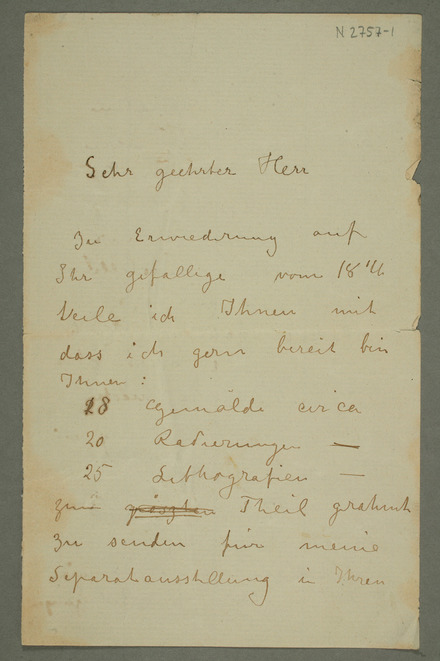 N 2757-1
Sehr geehrter Herr
In Erwiederung auf
Ihr gefällige vom 18
teile ich Ihnen mit
dass ich gern bereit bin
Ihnen:
28 Gemälde circa
20 Radierungen —
25 Lithografien —
zum größten Theil grahmt
zu senden für meine
Separatausstellung in Ihren